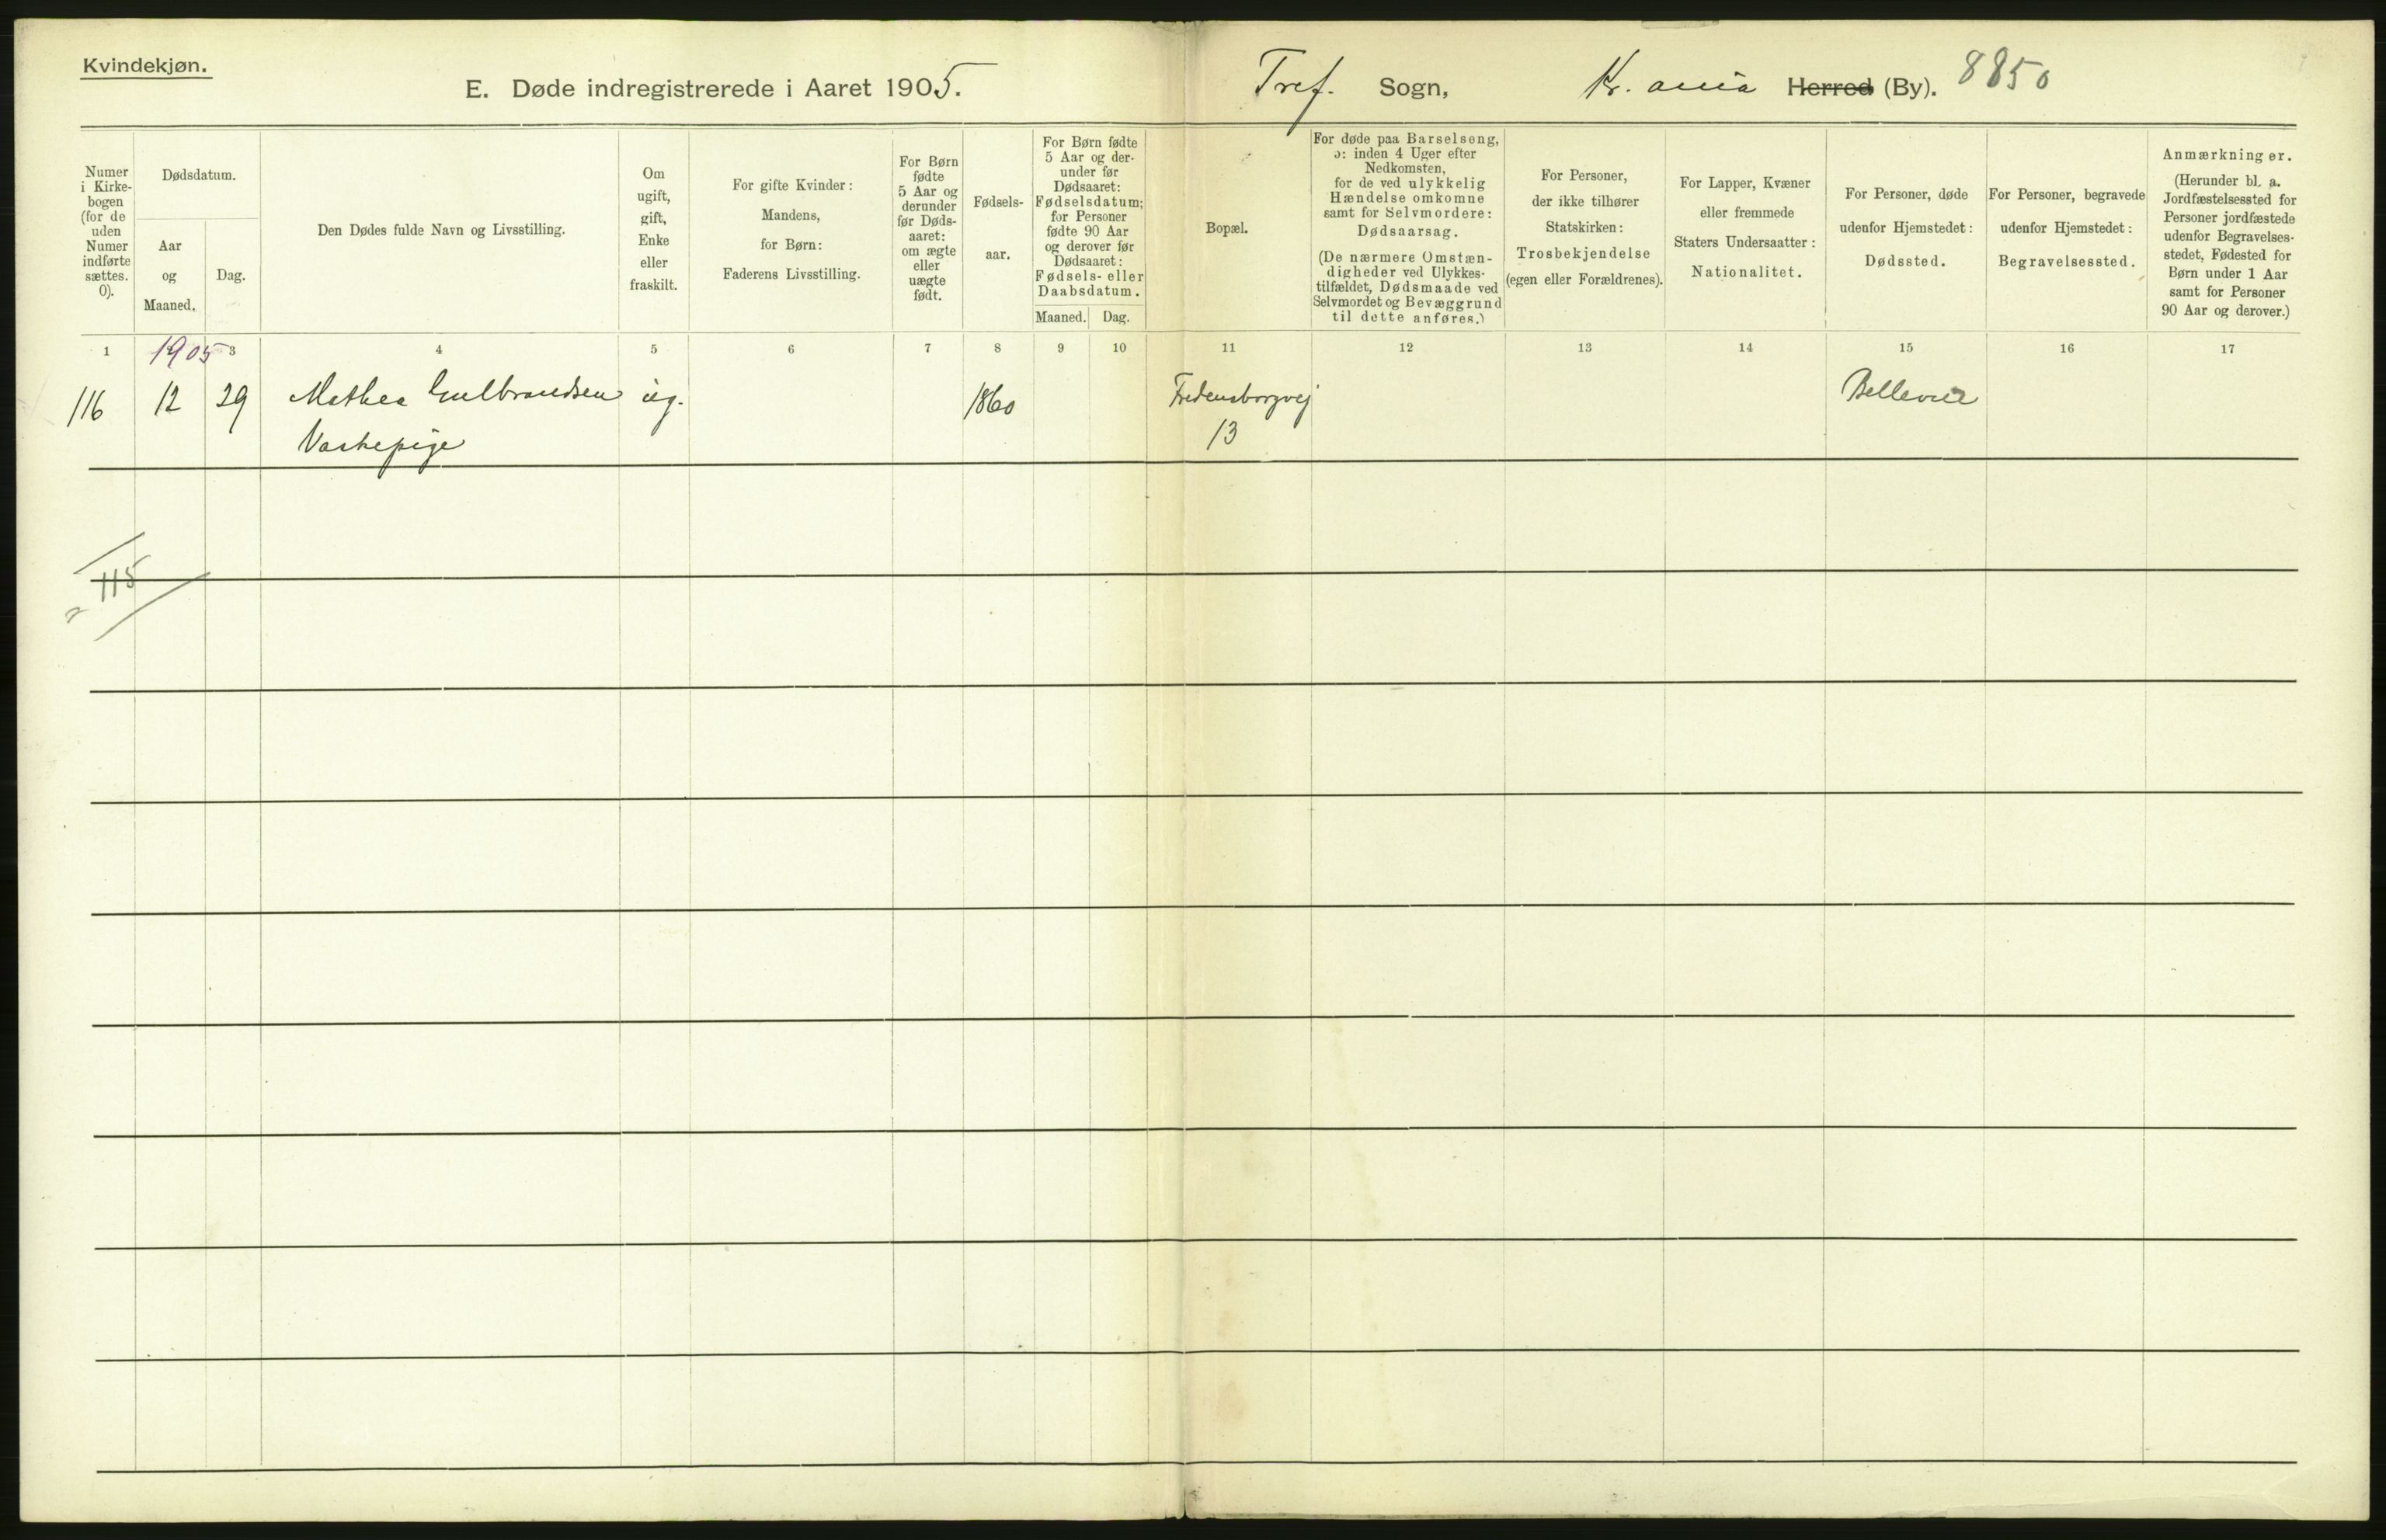 Kvindekjøn.
E. Døde indregistrerede i Aaret 1905.
Tref. Sogn, Kr. ania Herred (By). 8850
Numer
i Kirke-
bogen
(for de
uden
Numer
indførte
sættes.
0).
Dødsdatum.
Aar
og
Maaned.
Dag.
Den Dødes fulde Navn og Livsstilling.
Om
ugift,
gift,
Enke
eller
fraskilt.
For gifte Kvinder:
Mandens,
for Børn:
Faderens Livsstilling.
For Børn
fødte
5 Aar og
derunder
før Døds-
aaret:
om ægte
eller
uægte
født.
Fødsels-
aar.
For Børn fødte
5 Aar og der-
under før
Dødsaaret:
Fødselsdatum;
for Personer
fødte 90 Aar
og derover før
Dødsaaret:
Fødsels- eller
Daabsdatum.
Maaned. Dag.
Bopæl.
For døde paa Barselseng,
ɔ: inden 4 Uger efter
Nedkomsten,
for de ved ulykkelig
Hændelse omkomne
samt for Selvmordere:
Dødsaarsag.
(De nærmere Omstæn-
digheder ved Ulykkes-
tilfældet, Dødsmaade ved
Selvmordet og Bevæggrund
til dette anføres.)
For Personer,
der ikke tilhører
Statskirken:
Trosbekjendelse
(egen eller Forældrenes).
For Lapper, Kvæner
eller fremmede
Staters Undersaatter:
Nationalitet.
For Personer, døde
udenfor Hjemstedet:
Dødssted.
For Personer, begravede
udenfor Hjemstedet:
Begravelsessted.
Anmærkninger.
(Herunder bl. a.
Jordfæstelsessted for
Personer jordfæstede
udenfor Begravelses-
stedet, Fødested for
Børn under 1 Aar
samt for Personer
90 Aar og derover.)
1 1905 3 4 5 6 7 8 9 10 11 12 13 14 15 16 17
116 12 29 Mathea Gulbrandsen ug. 1860 Fredensborgvej Bellevue
Vaskepige 13
115